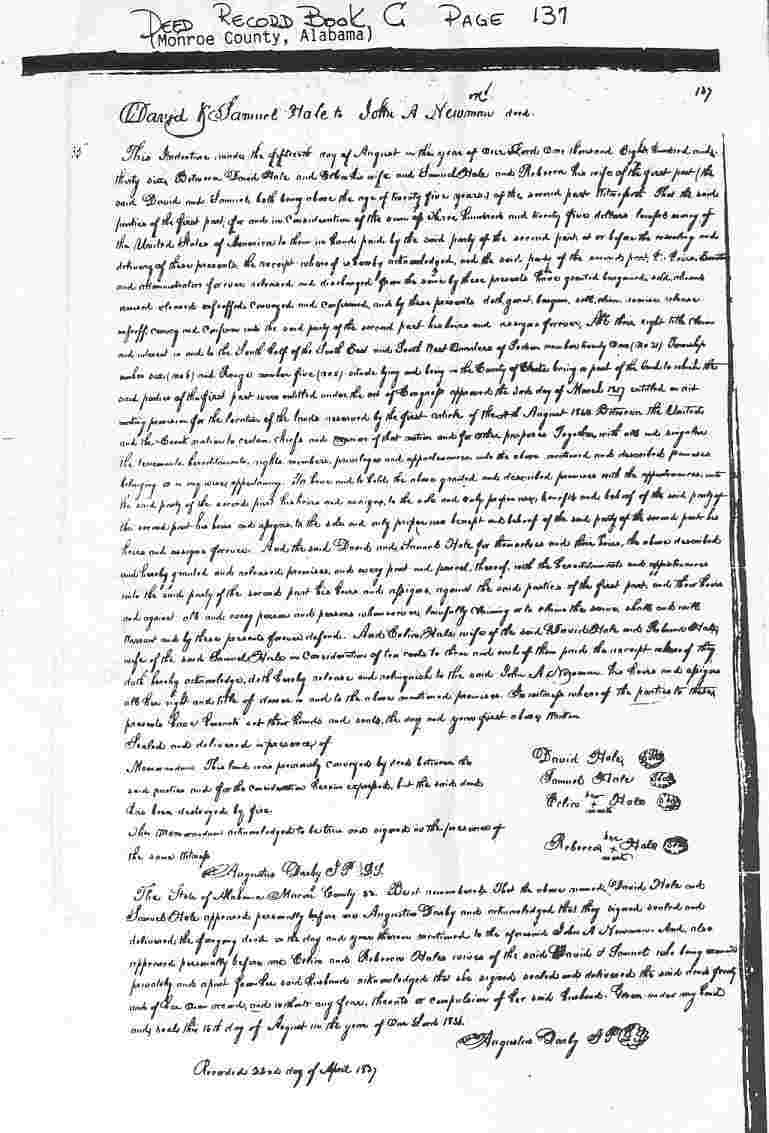 DEED RECORD BOOK, G PAGE 137
(Monroe County, Alabama)
137
David & Samuel Hale to John A Newman deed.
This Indenture made the fifteenth day of August in the year of Our Lord One thousand Eight hundred and
thirty six Between David Hale and his wife and Samuel Hale and Rebecca his wife of the first part (the
said David and Samuel both being above the age of twenty five years) of the second part Witnesseth That the said
parties of the first part, for and in consideration of the sum of three hundred and twenty five dollars lawful money of
the United States of America to them in hand paid by the said party of the second part, at or before the ensealing and
delivery of these presents, the receipt whereof is hereby acknowledged, and the said party of the second part,
and administrators forever released and discharged from the same by these presents have granted bargained, sold,
conveyed and confirmed, and by these presents doth grant, bargain, sell, alien, remise release
enfeoff convey and confirm unto the said party of the second part his heirs and assigns forever, All their right title claim
and interest in and to the South half of the South East and South West Quarters of Section number twenty One (No 21) Township
number six (No 6) and Range number five (No 5) lying and being in the County of being a part of the land to which the
said parties of the first part were entitled under the act of Congress approved the day of March entitled an act
making provision for the location of the lands reserved by the first article of the August Between the United
and the Creek nation to certain chiefs and of that nation and for other purposes Together, with all and singular
the tenements hereditaments, rights members, privileges and appurtenances, unto the above mentioned and described premises
belonging or in any wise appertaining. To have and to hold the above granted and described premises with the appurtenances, unto
the said party of the second part his heirs and assigns, to the sole and only proper use, benefit and behoof of the said party of
the second part his heirs and assigns, to the sole and only proper use benefit and behoof of the said party of the second part his
heirs and assigns forever. And the said David and Samuel Hale for themselves and their heirs, the above described
and hereby granted and released premises, and every part and parcel, thereof, with the hereditaments and appurtenances
unto the said party of the second part his heirs and assigns, against the said parties of the first part, and their heirs
and against all and every person and persons whomsoever, lawfully claiming or to claim the same, shall and will
warrant and by these presents forever defend. And Hale wife of the said David Hale and Hale,
wife of the said Samuel Hale in Consideration of ten cents to them and each of them paid the receipt whereof they
doth hereby acknowledge, doth hereby release and relinquish to the said John A Newman his heirs and assigns
all her right and title of dower in and to the above mentioned premises. In witness whereof the parties to these
presents have hereunto set their hands and seals, the day and year first above written
Sealed and delivered in presence of
David Hale, Seal
Memorandum This land was previously conveyed by deed between the
Samuel Hale Seal
said parties and for the consideration herein expressed, but the said deed
her + mark Hale Seal
has been destroyed by fire
This Memorandum acknowledged to be true and signed in the presence of
Rebecca her + mark Hale Seal
the same Witness
Augustus Darby J P
The State of Alabama County ss. Be it remembered That the above named, David Hale and
Samuel Hale appeared personally before me Augustus Darby and acknowledged that they signed sealed and
delivered the foregoing deed on the day and year therein mentioned to the aforesaid John A Newman. And, also
appeared personally before me and Rebecca Hales wives of the said David & Samuel who being examined
privately and apart from her said husbands acknowledged that she signed sealed and delivered the said deed freely
and of her own accord, and without any fear, threats or compulsion of her said husband. Given under my hand
and seal this 15th day of August in the year of Our Lord 1836.
Augustus Darby J P
Recorded 22nd day of April 1837